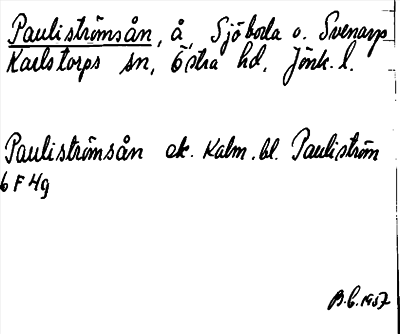 Pauliströmsån, å, Sjöboda o. Svenarp
Karlstorps sn, Östra hd, Jönk. l.
Pauliströmsån ek. Kalm. bl. Pauliström
6 F 4g
B.C. 1957